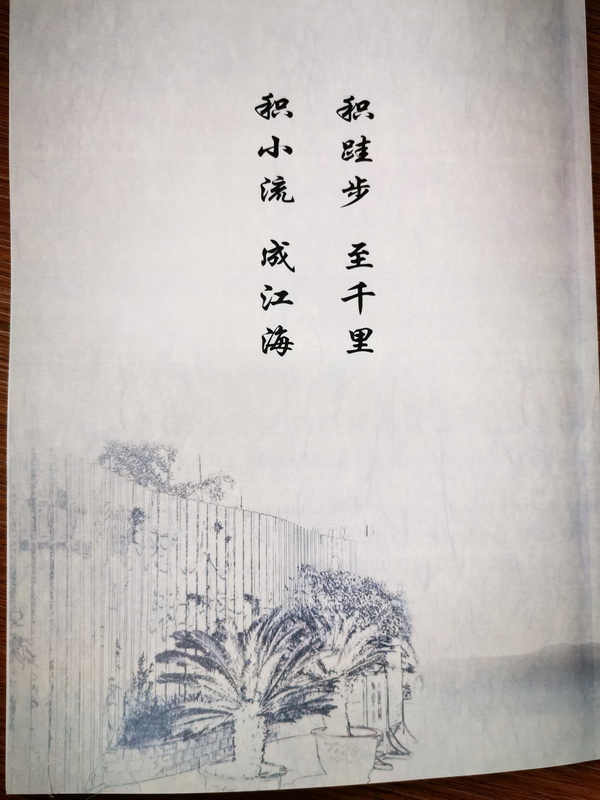 积跬步 至千里
积小流 成江海